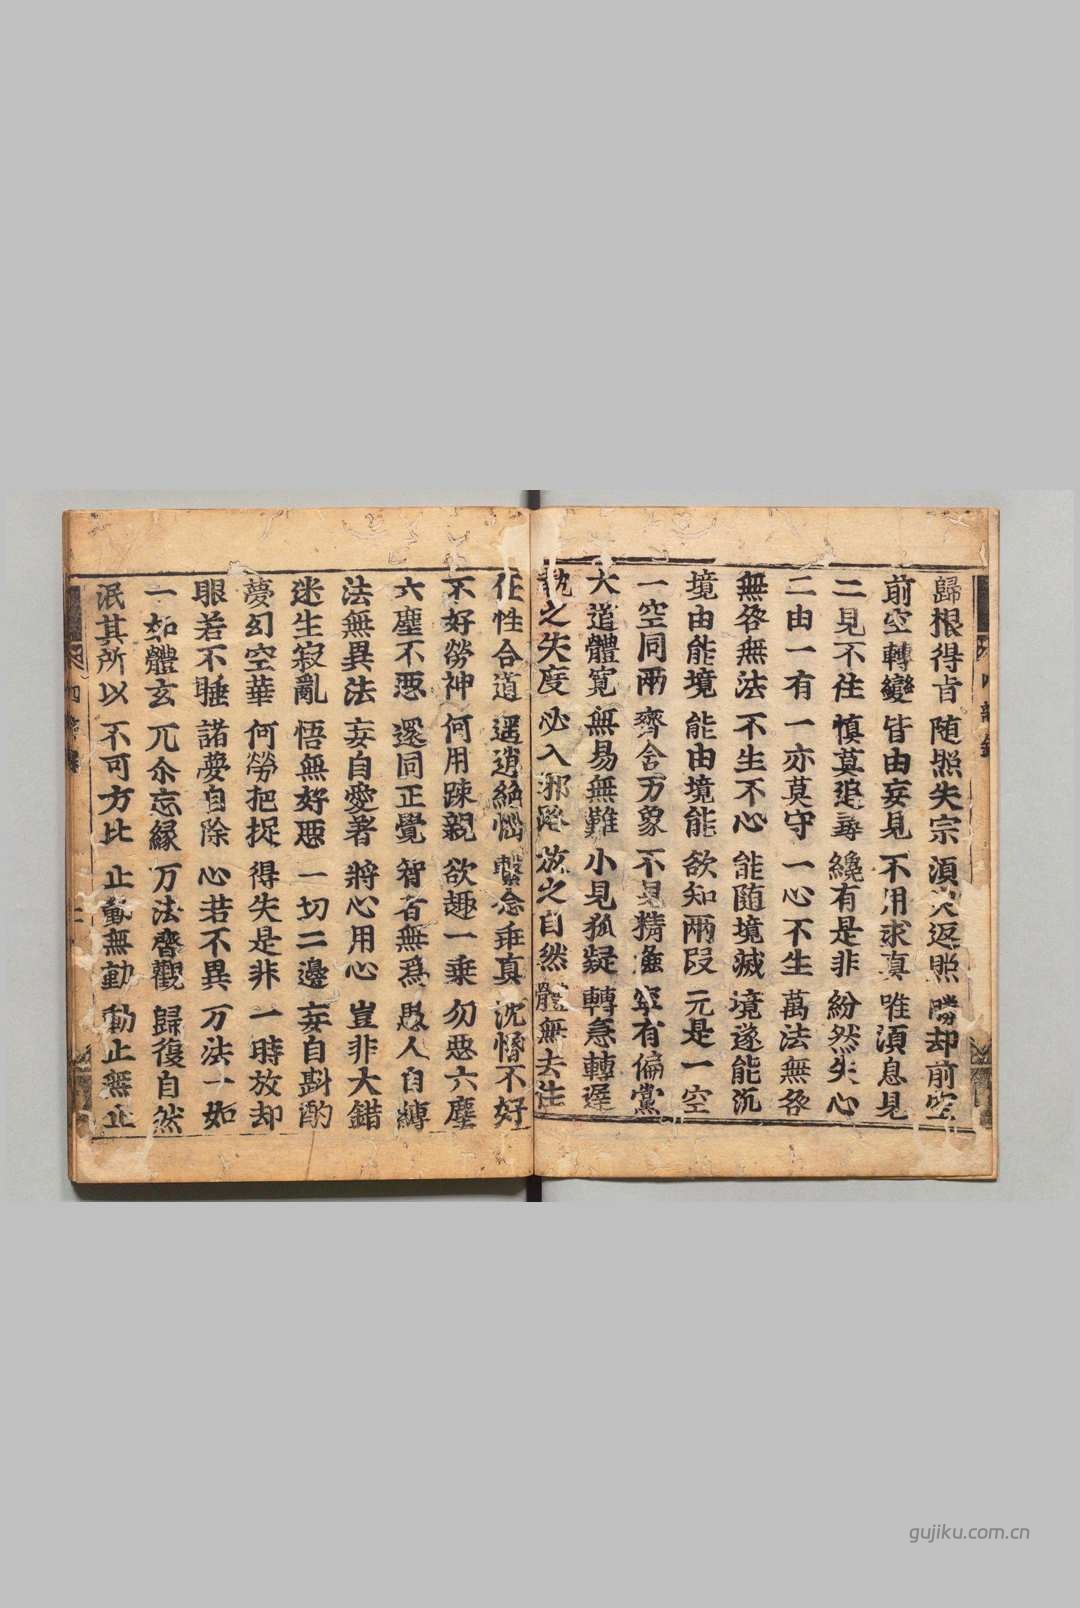 歸根得旨 随照失宗 湏臾返照 勝却前空
前空轉變 皆由妄見 不用求真 唯湏息見
二見不住 慎莫追尋 纔有是非 紛然失心
二由一有 一亦莫守 一心不生 萬法無咎
無咎無法 不生不心 能随境滅 境逐能沉
境由能境 能由境能 欲知兩段 元是一空
一空同兩 齊含万象 不見精麁 寧有偏黨
大道體寛 無易無難 小見狐疑 轉急轉遲
執之失度 必入邪路 放之自然 體無去住
任性合道 逍遥絶惱 繫念乖真 沉惛不好
不好勞神 何用踈親 欲趣一乗 勿惡六塵
六塵不惡 還同正覺 智者無爲 愚人自縛
法無異法 妄自愛著 將心用心 豈非大錯
迷生寂亂 悟無好惡 一切二邊 妄自斟酌
夢幻空華 何勞把捉 得失是非 一時放却
眼若不睡 諸夢自除 心若不異 万法一如
一如體玄 兀尒忘縁 万法齊觀 歸復自然
泯其所以 不可方比 止動無動 動止無止
gujiku.com.cn